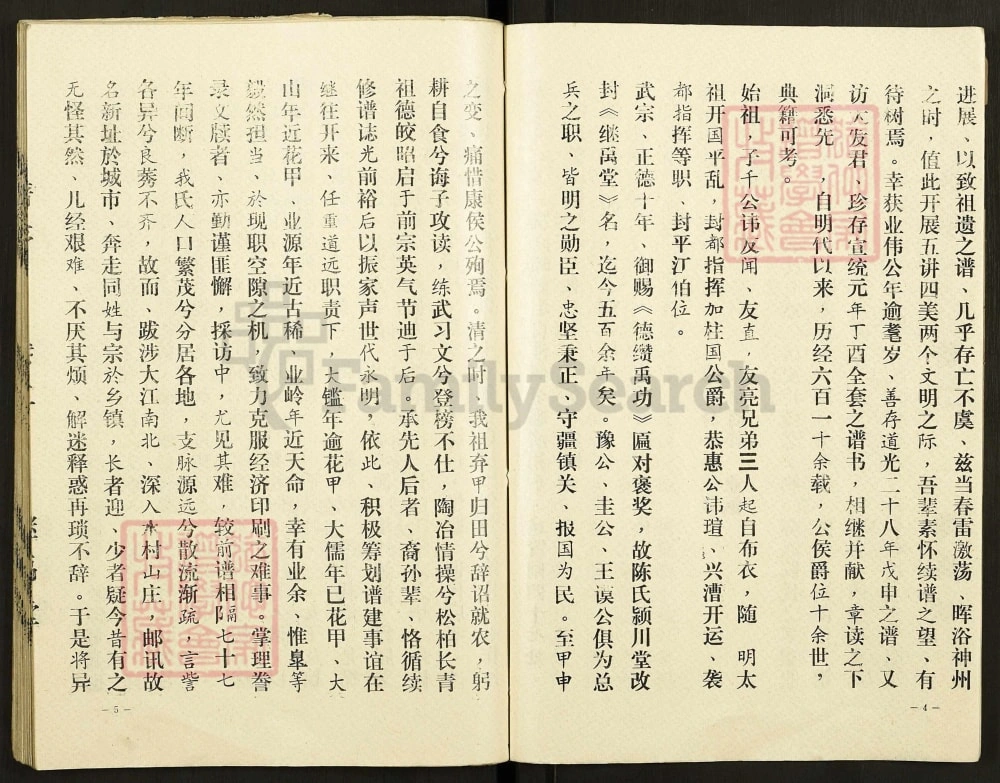 进展、以致祖遗之谱、几乎存亡不虞、兹当春雷激荡、晖浴神州
之时，值此开展五讲四美两个文明之际，吾辈素怀续谱之望、有
待树焉。幸获业伟公年逾耄岁、善存道光二十八年戊申之谱、又
访 发君、珍存宣统元年丁酉全套之谱书，相继并献，章读之下
洞悉先 ，自明代以来，历经六百一十余载，公侯爵位十余世，
典籍可考。
始祖，子千公讳友闻、友直，友亮兄弟三人起自布衣，随 明太
祖开国平乱，封都指挥加柱国公爵，恭惠公讳瑄、兴漕开运、袭
都指挥等职、封平江伯位。
武宗、正德十年、御赐《德缵禹功》匾对褒奖，故陈氏颍川堂改
封《继禹堂》名，迄今五百余年矣。豫公、圭公、王谟公俱为总
兵之职、皆明之勋臣、忠坚秉正、守疆镇关、报国为民。至甲申
－4－
之变、痛惜康侯公殉焉。清之时、我祖弃甲归田兮辞诏就农，躬
耕自食兮诲子攻读，练武习文兮登榜不仕，陶冶情操兮松柏长青
祖德皎昭启于前宗英气节迪于后。承先人后者、裔孙辈、恪循续
修谱誌光前裕后以振家声世代永明，依此、积极筹划谱建事谊在
继往开来、任重道远职责下，大镒年逾花甲、大儒年已花甲、大
山年近花甲、业源年近古稀、业岭年近天命，幸有业余、惟皐等
毅然担当、於现职空隙之机，致力克服经济印刷之难事。掌理誊
录文牍者、亦勤谨匪懈，採访中，尤见其难，较前谱相隔七十七
年间断，我氏人口繁茂兮分居各地，支脉源远兮散流渐疏，言訾
各异兮良莠不齐，故而、跋涉大江南北、深入水村山庄，邮讯故
名新址於城市、奔走同姓与宗於乡镇，长者迎、少者疑今昔有之
无怪其然、儿经艰难、不厌其烦、解迷释惑再琐不辞。于是将异
－5－
FamilySearch